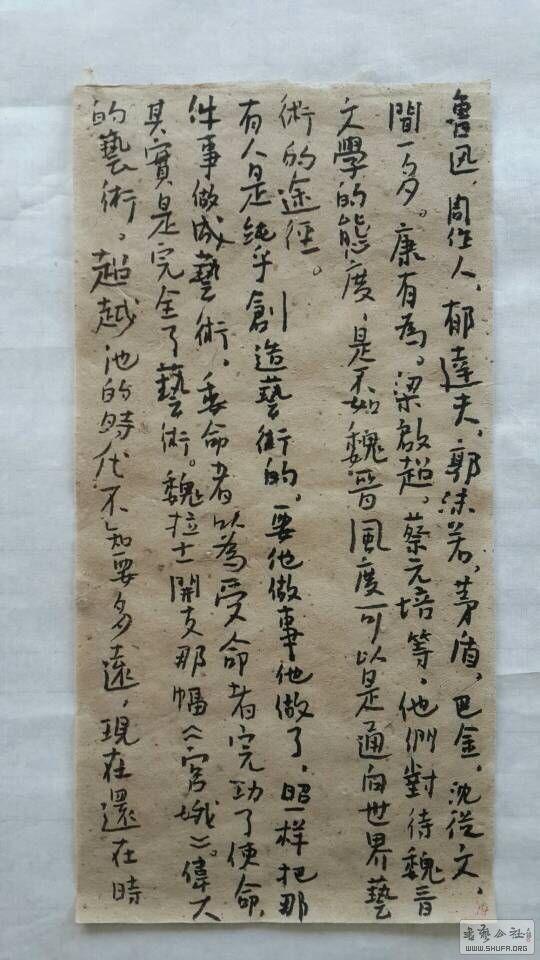 魯迅，周作人，郁達夫，郭沫若，茅盾，巴金，沈從文，
聞一多。康有為。梁啟超。蔡元培等，他們對待魏晉
文學的態度，是不如魏晉風度可以是通向世界藝
術的途徑。 有人是純乎創造藝術的。要他做事他做了，照樣把那
件事做成藝術，委命者以為受命者完功了使命，
其實是完全了藝術。魏拉士開支那幅《宮娥》。偉大
的藝術。超越他的時代不知要多遠，現在還在時
书艺公社
WWW.SHUFA.ORG